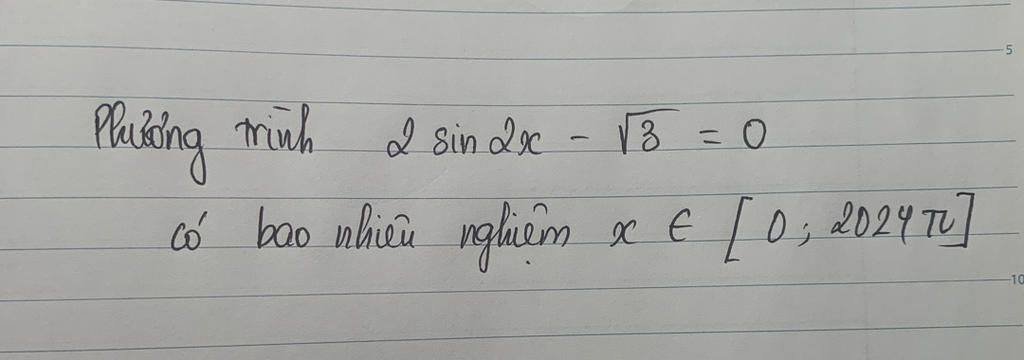 5
Phương trình 2 sin 2x - √3 = 0
có bao nhiêu nghiệm x ∈ [0; 2024π]
10